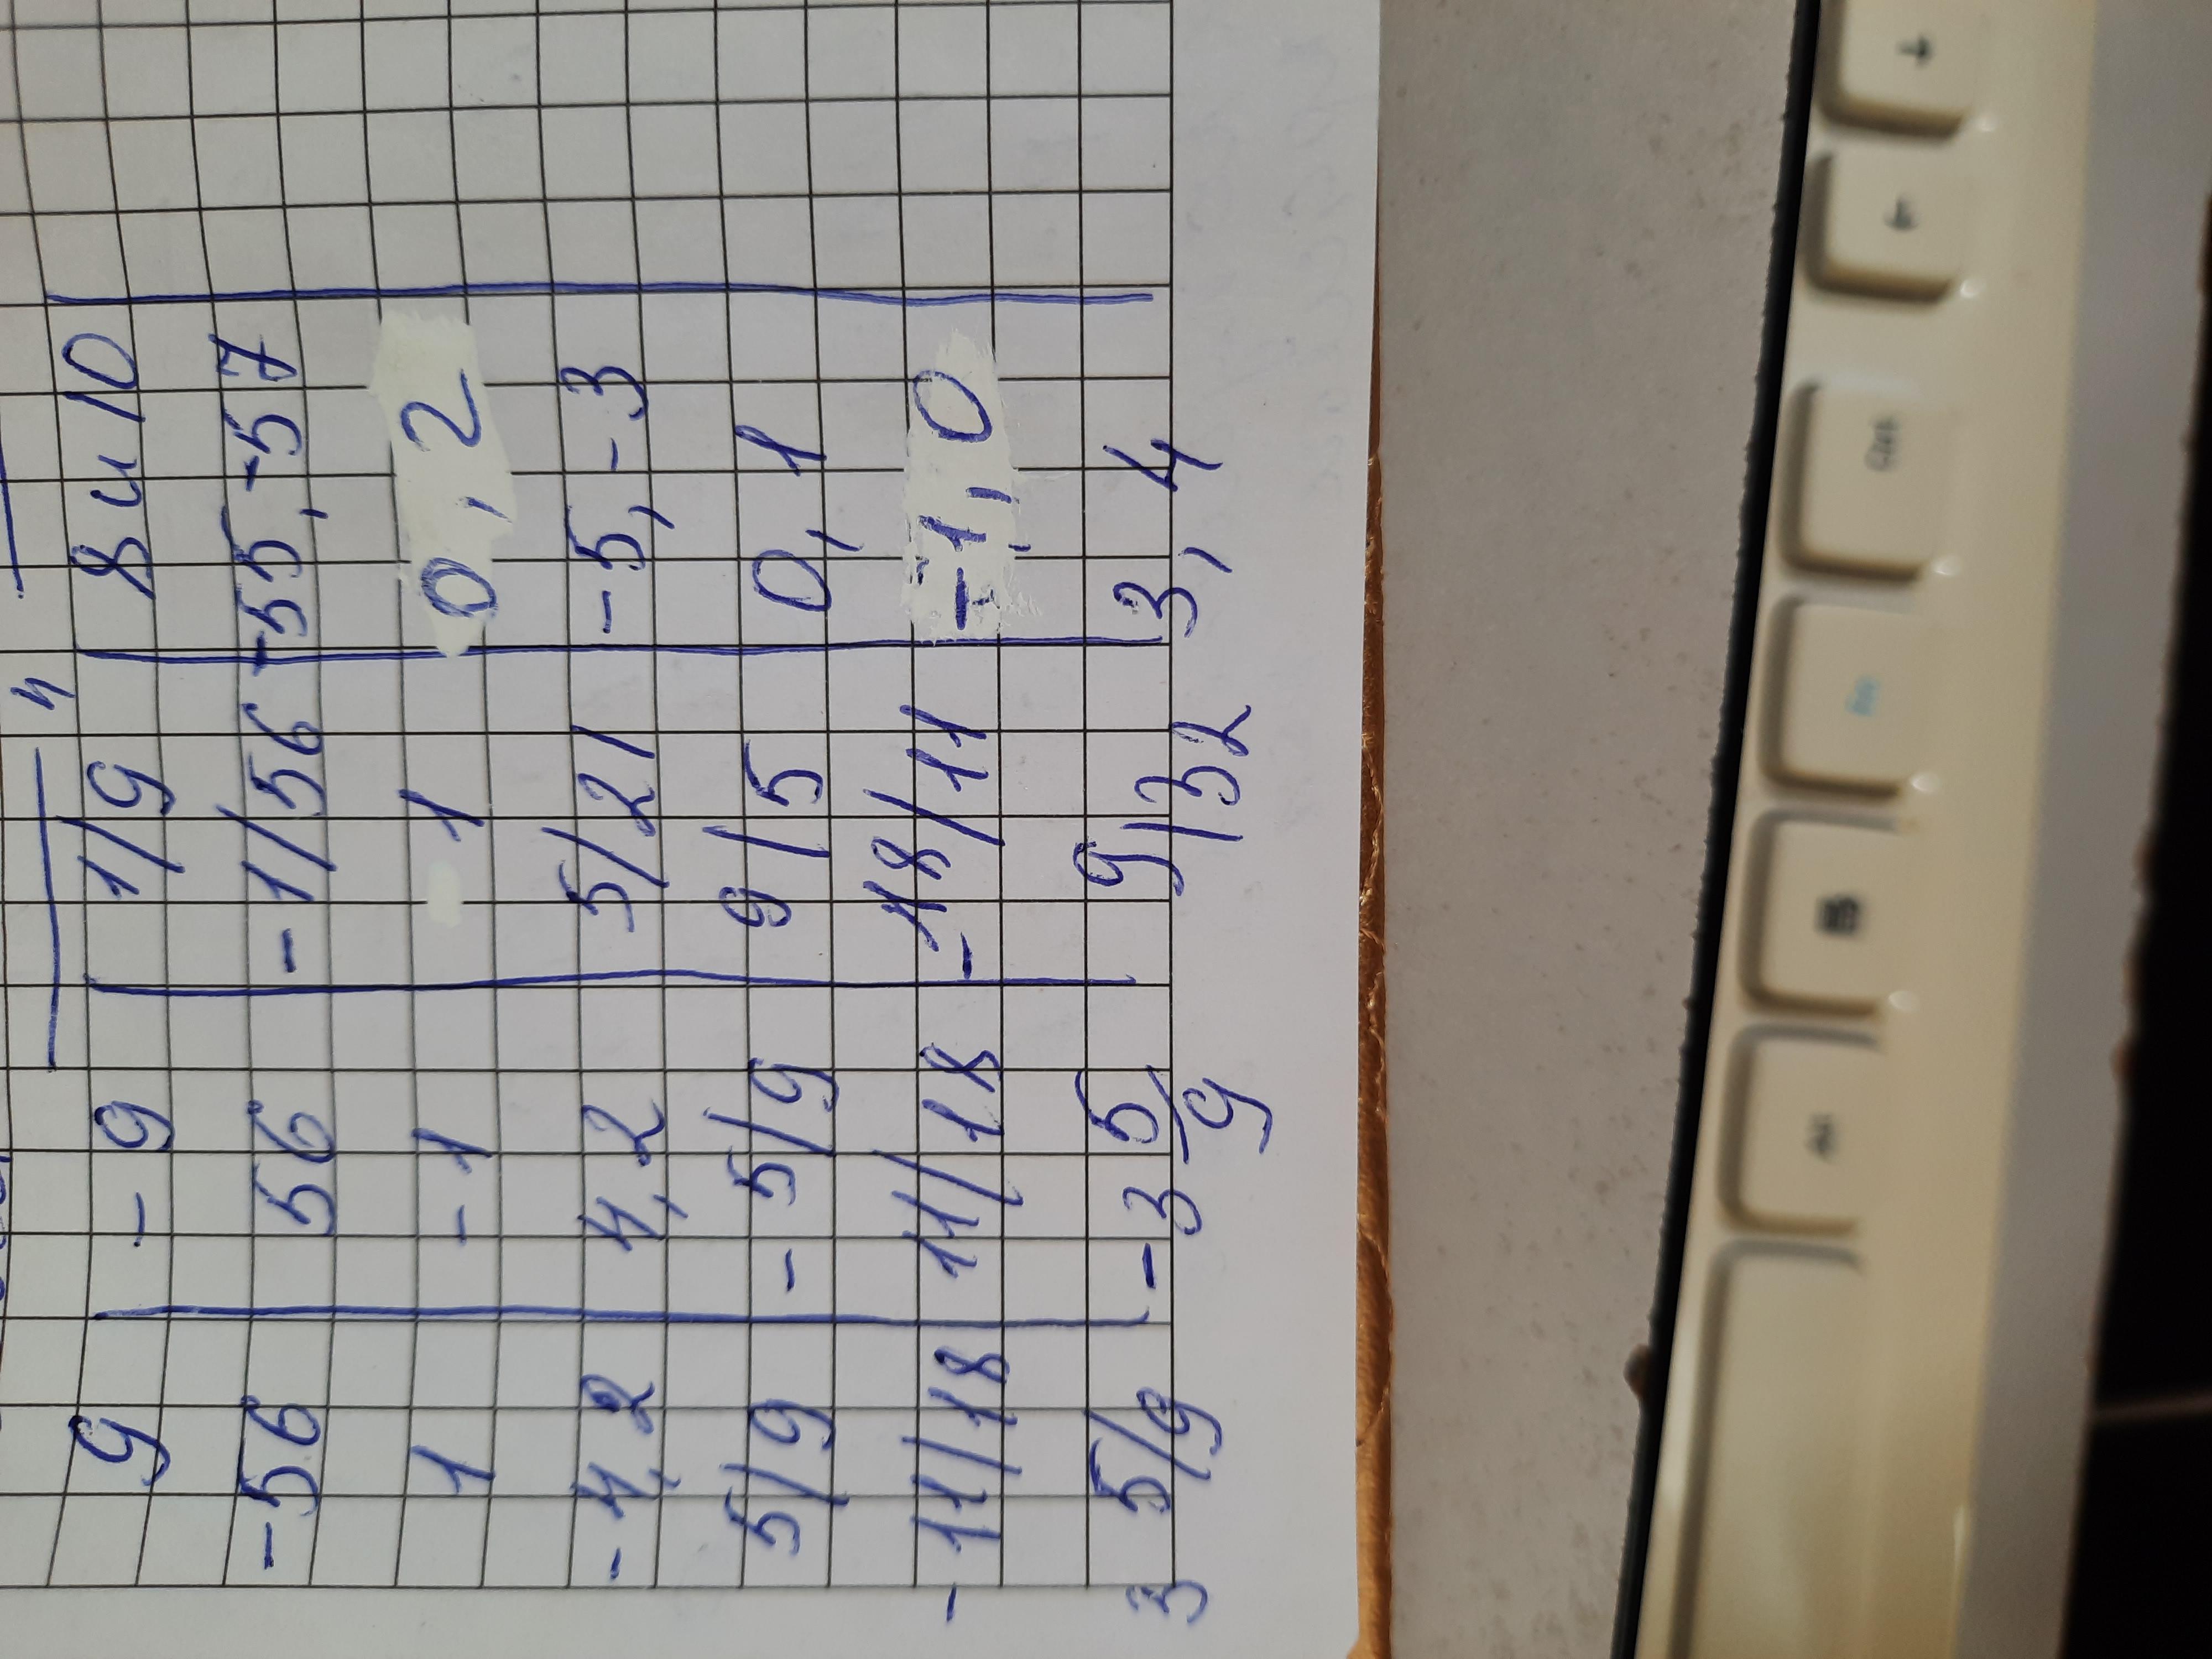 9 - 9 1/9 8 и 10
-56 56 -1/56 -55, -57
1 -1 1 0, 2
-4,2 4,2 5/21 -5, -3
5/9 -5/9 9/5 0, 1
-11/18 11/18 -18/11 -1, 0
3 5/9 -3 5/9 9/32 3, 4